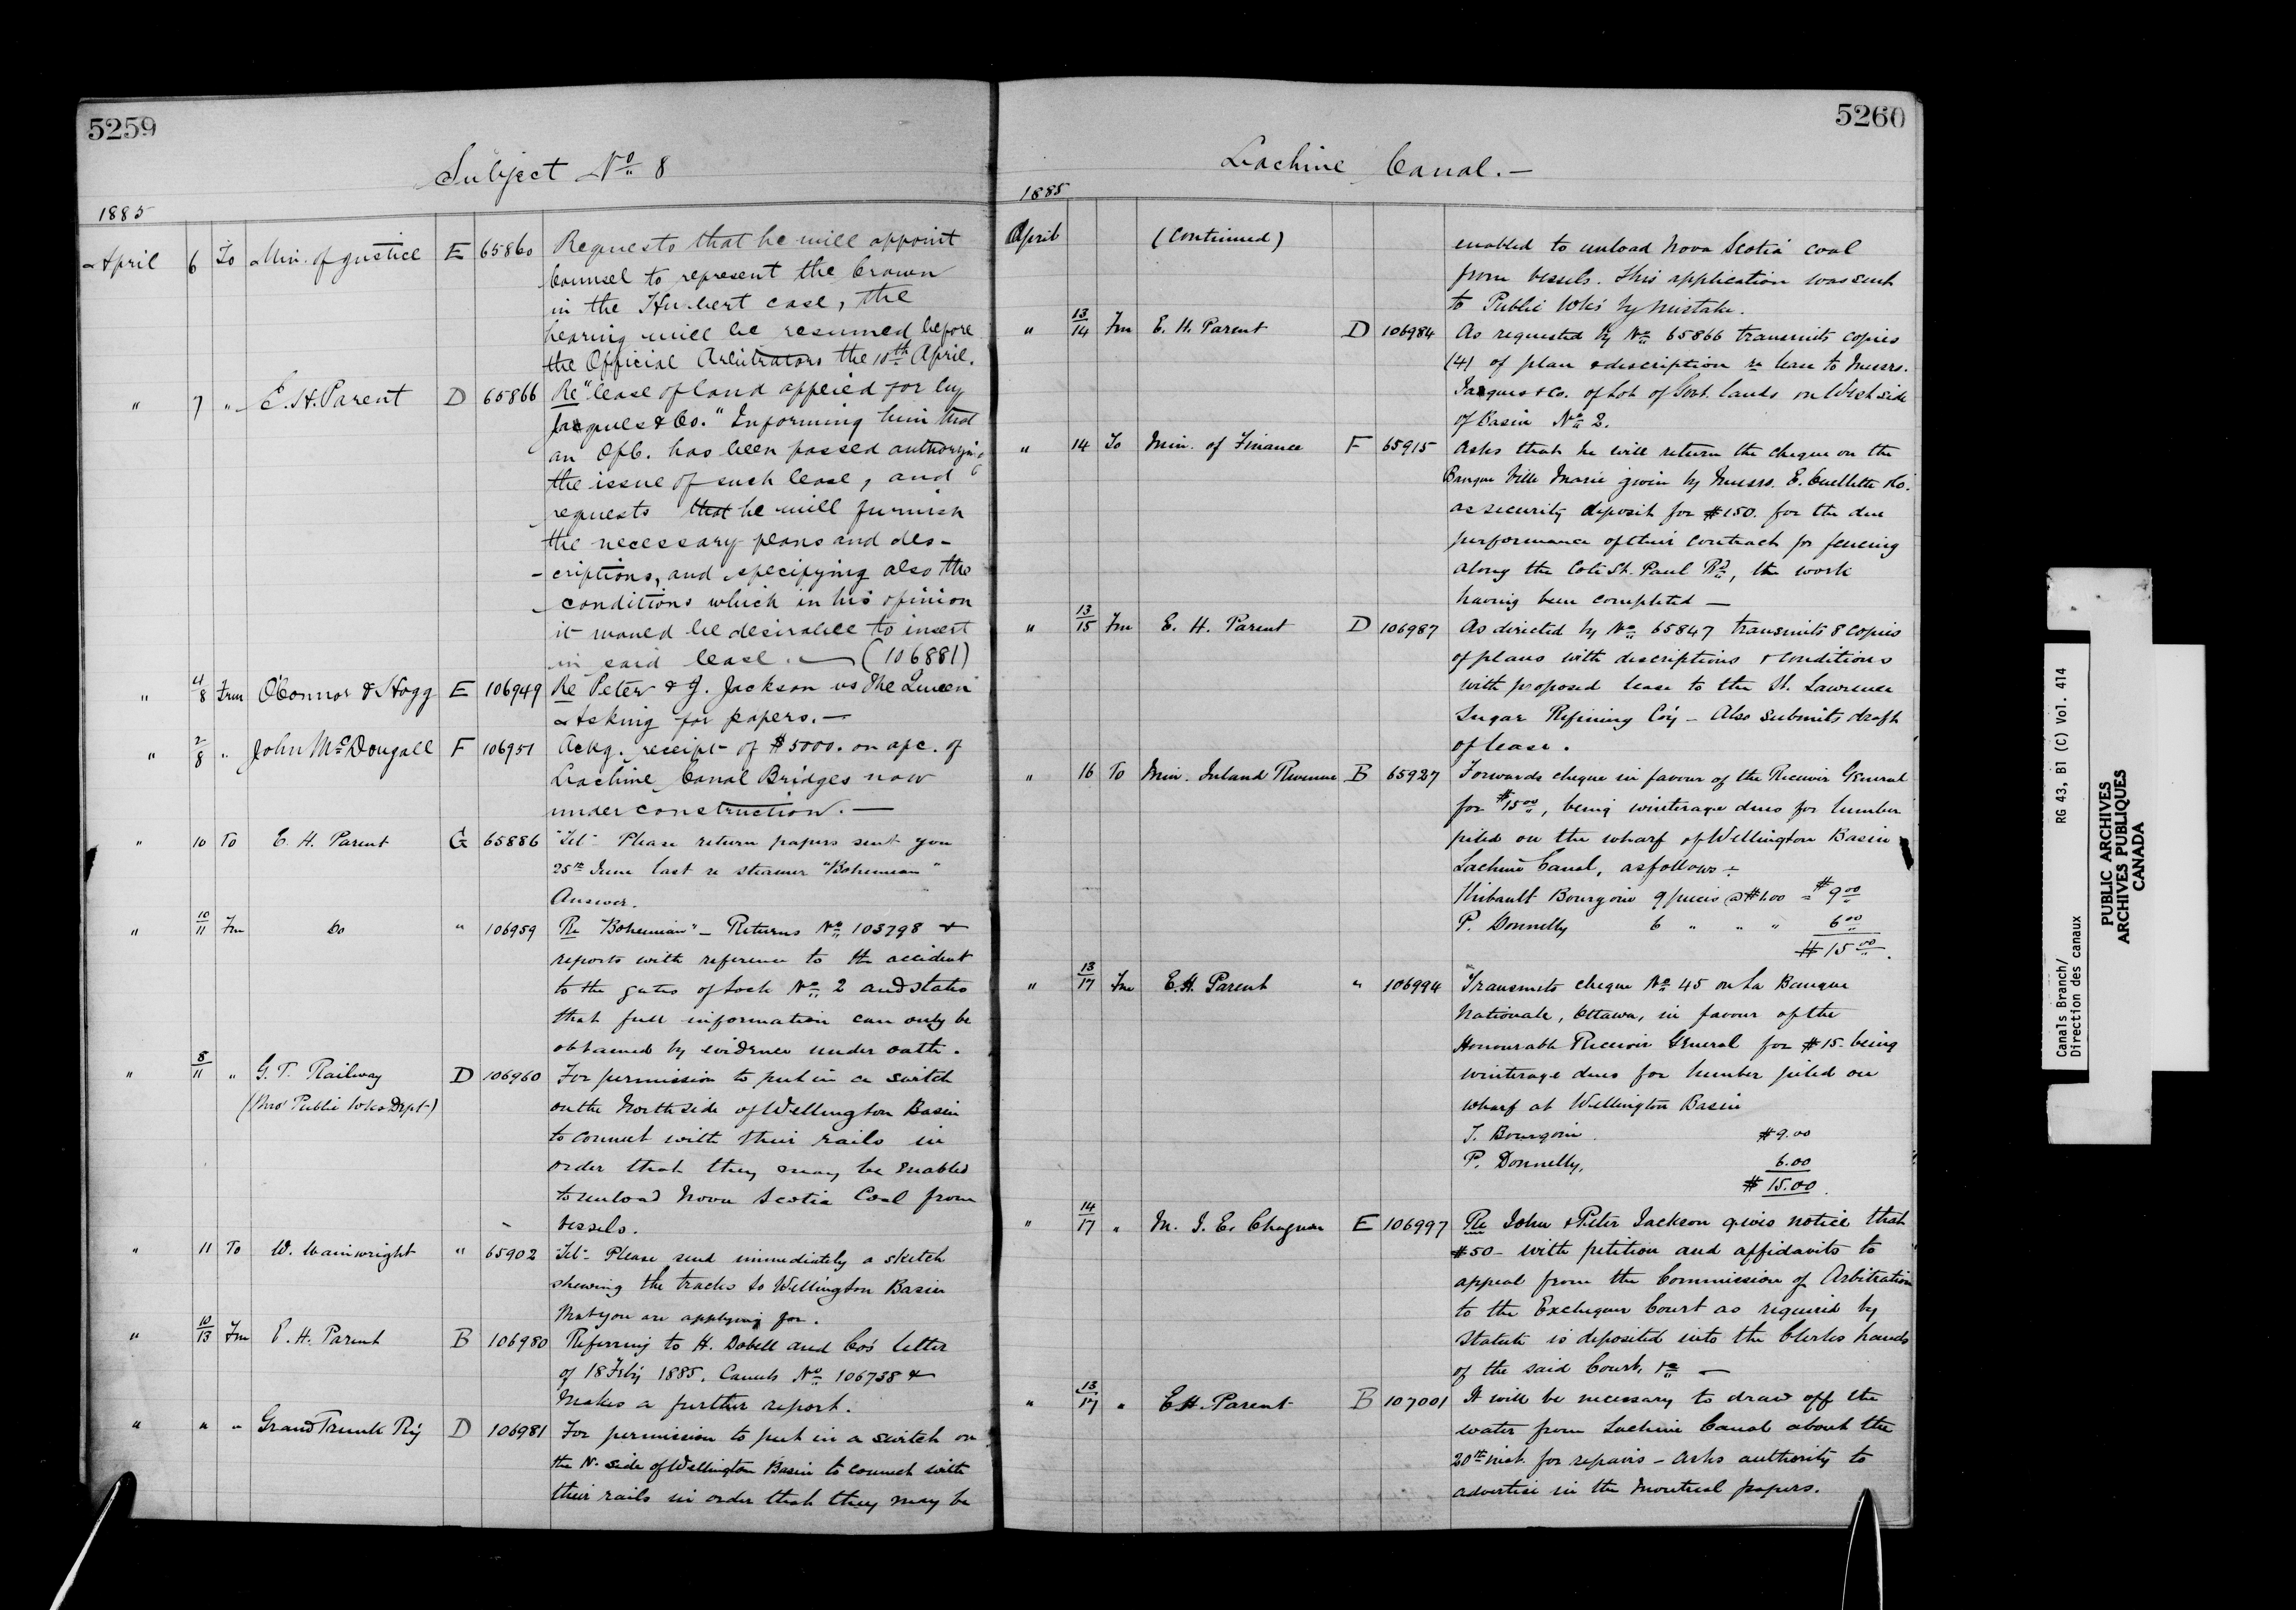 5259
Subject No 8
1885
April 6 To Min. of Justice E 65860 Requests that he will appoint
Counsel to represent the Crown
in the Hubert case, the
hearing will be resumed before
the Official Arbitrators the 10th April.
" 7 " E. H. Parent D 65866 Re "lease of land applied for by
Jacques & Co." Informing him that
an O/C. has been passed authorizing
the issue of such lease, and
requests that he will furnish
the necessary plans and des-
-criptions, and specifying also the
conditions which in his opinion
it would be desirable to insert
in said lease. — (106881)
" 4/8 Frm O'Connor & Hogg E 106949 Re Peter & J. Jackson vs The Queen
Asking for papers. —
" 2/8 " John McDougall F 106951 Ackg. receipt of $5000. on a/c. of
Lachine Canal Bridges now
under construction. —
" 10 To E. H. Parent G 65886 "Tel" Please return papers sent you
25th June last re steamer "Bohemian"
Answer.
" 10/11 Fm Do " 106959 Re "Bohemian" — Returns No 103798 &
reports with reference to the accident
to the gates of Lock No 2 and states
that full information can only be
obtained by evidence under oath.
" 8/11 " G. T. Railway D 106960 For permission to put in a switch
(thro' Public Wks Dept) on the North side of Wellington Basin
to connect with their rails in
order that they may be enabled
to unload Nova Scotia Coal from
vessels.
" 11 To W. Wainwright " 65902 "Tel" Please send immediately a sketch
shewing the tracks to Wellington Basin
that you are applying for.
" 10/13 Fm E. H. Parent B 106980 Referring to H. Dobell and Co's letter
of 18 Feby 1885. Canals No 106738 &
Makes a further report.
" " " Grand Trunk Ry D 106981 For permission to put in a switch on
the N. side of Wellington Basin to connect with
their rails in order that they may be
5260
Lachine Canal. —
1885
April (Continued) enabled to unload Nova Scotia coal
from vessels. This application was sent
to Public Wks by mistake.
" 13/14 Fm E. H. Parent D 106984 As requested by No 65866 transmits copies
(4) of plan & description re lease to Messrs.
Jacques & Co. of Lot of Govt. lands on West side
of Basin No 2.
" 14 To Min. of Finance F 65915 Asks that he will return the cheque on the
Banque Ville Marie given by Messrs. E. Ouellette & Co.
as security deposit for $150. for the due
performance of their contract for fencing
along the Cote St. Paul Rd, the work
having been completed —
" 13/15 Fm E. H. Parent D 106987 As directed by No 65847 transmits 8 copies
of plans with descriptions & conditions
with proposed lease to the St. Lawrence
Sugar Refining Coy — Also submits draft
of lease.
" 16 To Min. Inland Revenue B 65927 Forwards cheque in favour of the Receiver General
for $15 00, being winterage dues for lumber
piled on the wharf of Wellington Basin
Lachine Canal, as follows:-
Thibault Bourgoin 9 pieces @ $1.00 = $9 00
P. Donnelly 6 " " " 6 00
$15 00.
" 13/17 Fm E. H. Parent " 106994 Transmits cheque No 45 on La Banque
Nationale, Ottawa, in favour of the
Honourable Receiver General for $15- being
winterage dues for lumber piled on
wharf at Wellington Basin
T. Bourgoin. $9.00
P. Donnelly, 6.00
$15.00.
" 14/17 " M. J. E. Chagnon E 106997 Re John & Peter Jackson gives notice that
$50- with petition and affidavits to
appeal from the Commission of Arbitration
to the Exchequer Court as required by
statute is deposited into the Clerks hands
of the said Court, &c —
" 13/17 " E. H. Parent B 107001 It will be necessary to draw off the
water from Lachine Canal about the
20th inst. for repairs — Asks authority to
advertise in the Montreal papers.
Canals Branch/ RG 43, B1 (C) Vol. 414
Direction des canaux
PUBLIC ARCHIVES
ARCHIVES PUBLIQUES
CANADA